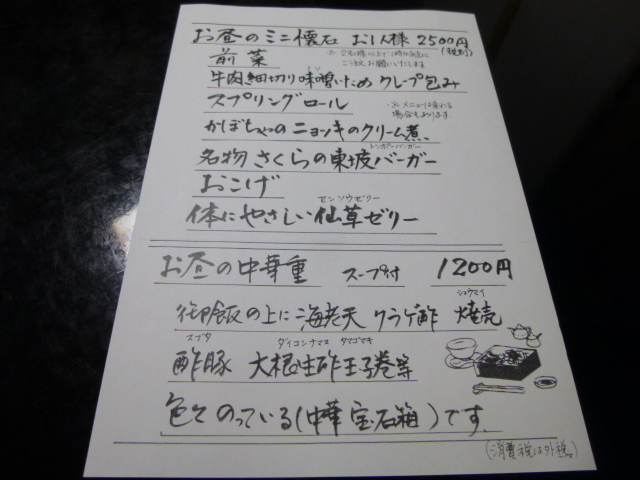 お昼のミニ懐石 お1人様 2500円
(税別)
前菜
※ 2名様以上で1時
ご注文お願いいたします
牛肉細切り味噌いため クレープ包み
スプリングロール
※メニューは変わる
場合もあります
かぼちゃのニョッキのクリーム煮
トンポーバーガー
名物さくらの東坡バーガー
おこげ
センソウゼリー
体にやさしい仙草ゼリー
お昼の中華重 スープ付 1200円
シュウマイ
御飯の上に海老天 クラゲ酢 焼売
スブタ ダイコンナマス タマゴマキ
酢豚 大根生酢 玉子巻等
色々のっている(中華宝石箱)です
(消費税は外税)